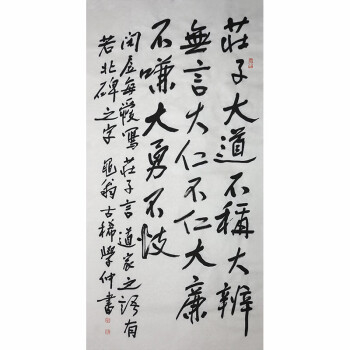 莊子大道不稱大辯
無言大仁不仁大廉
不嗛大勇不忮
閑居每愛寫莊子言道家之語有
若北碑之字 龜翁古稀學仲書